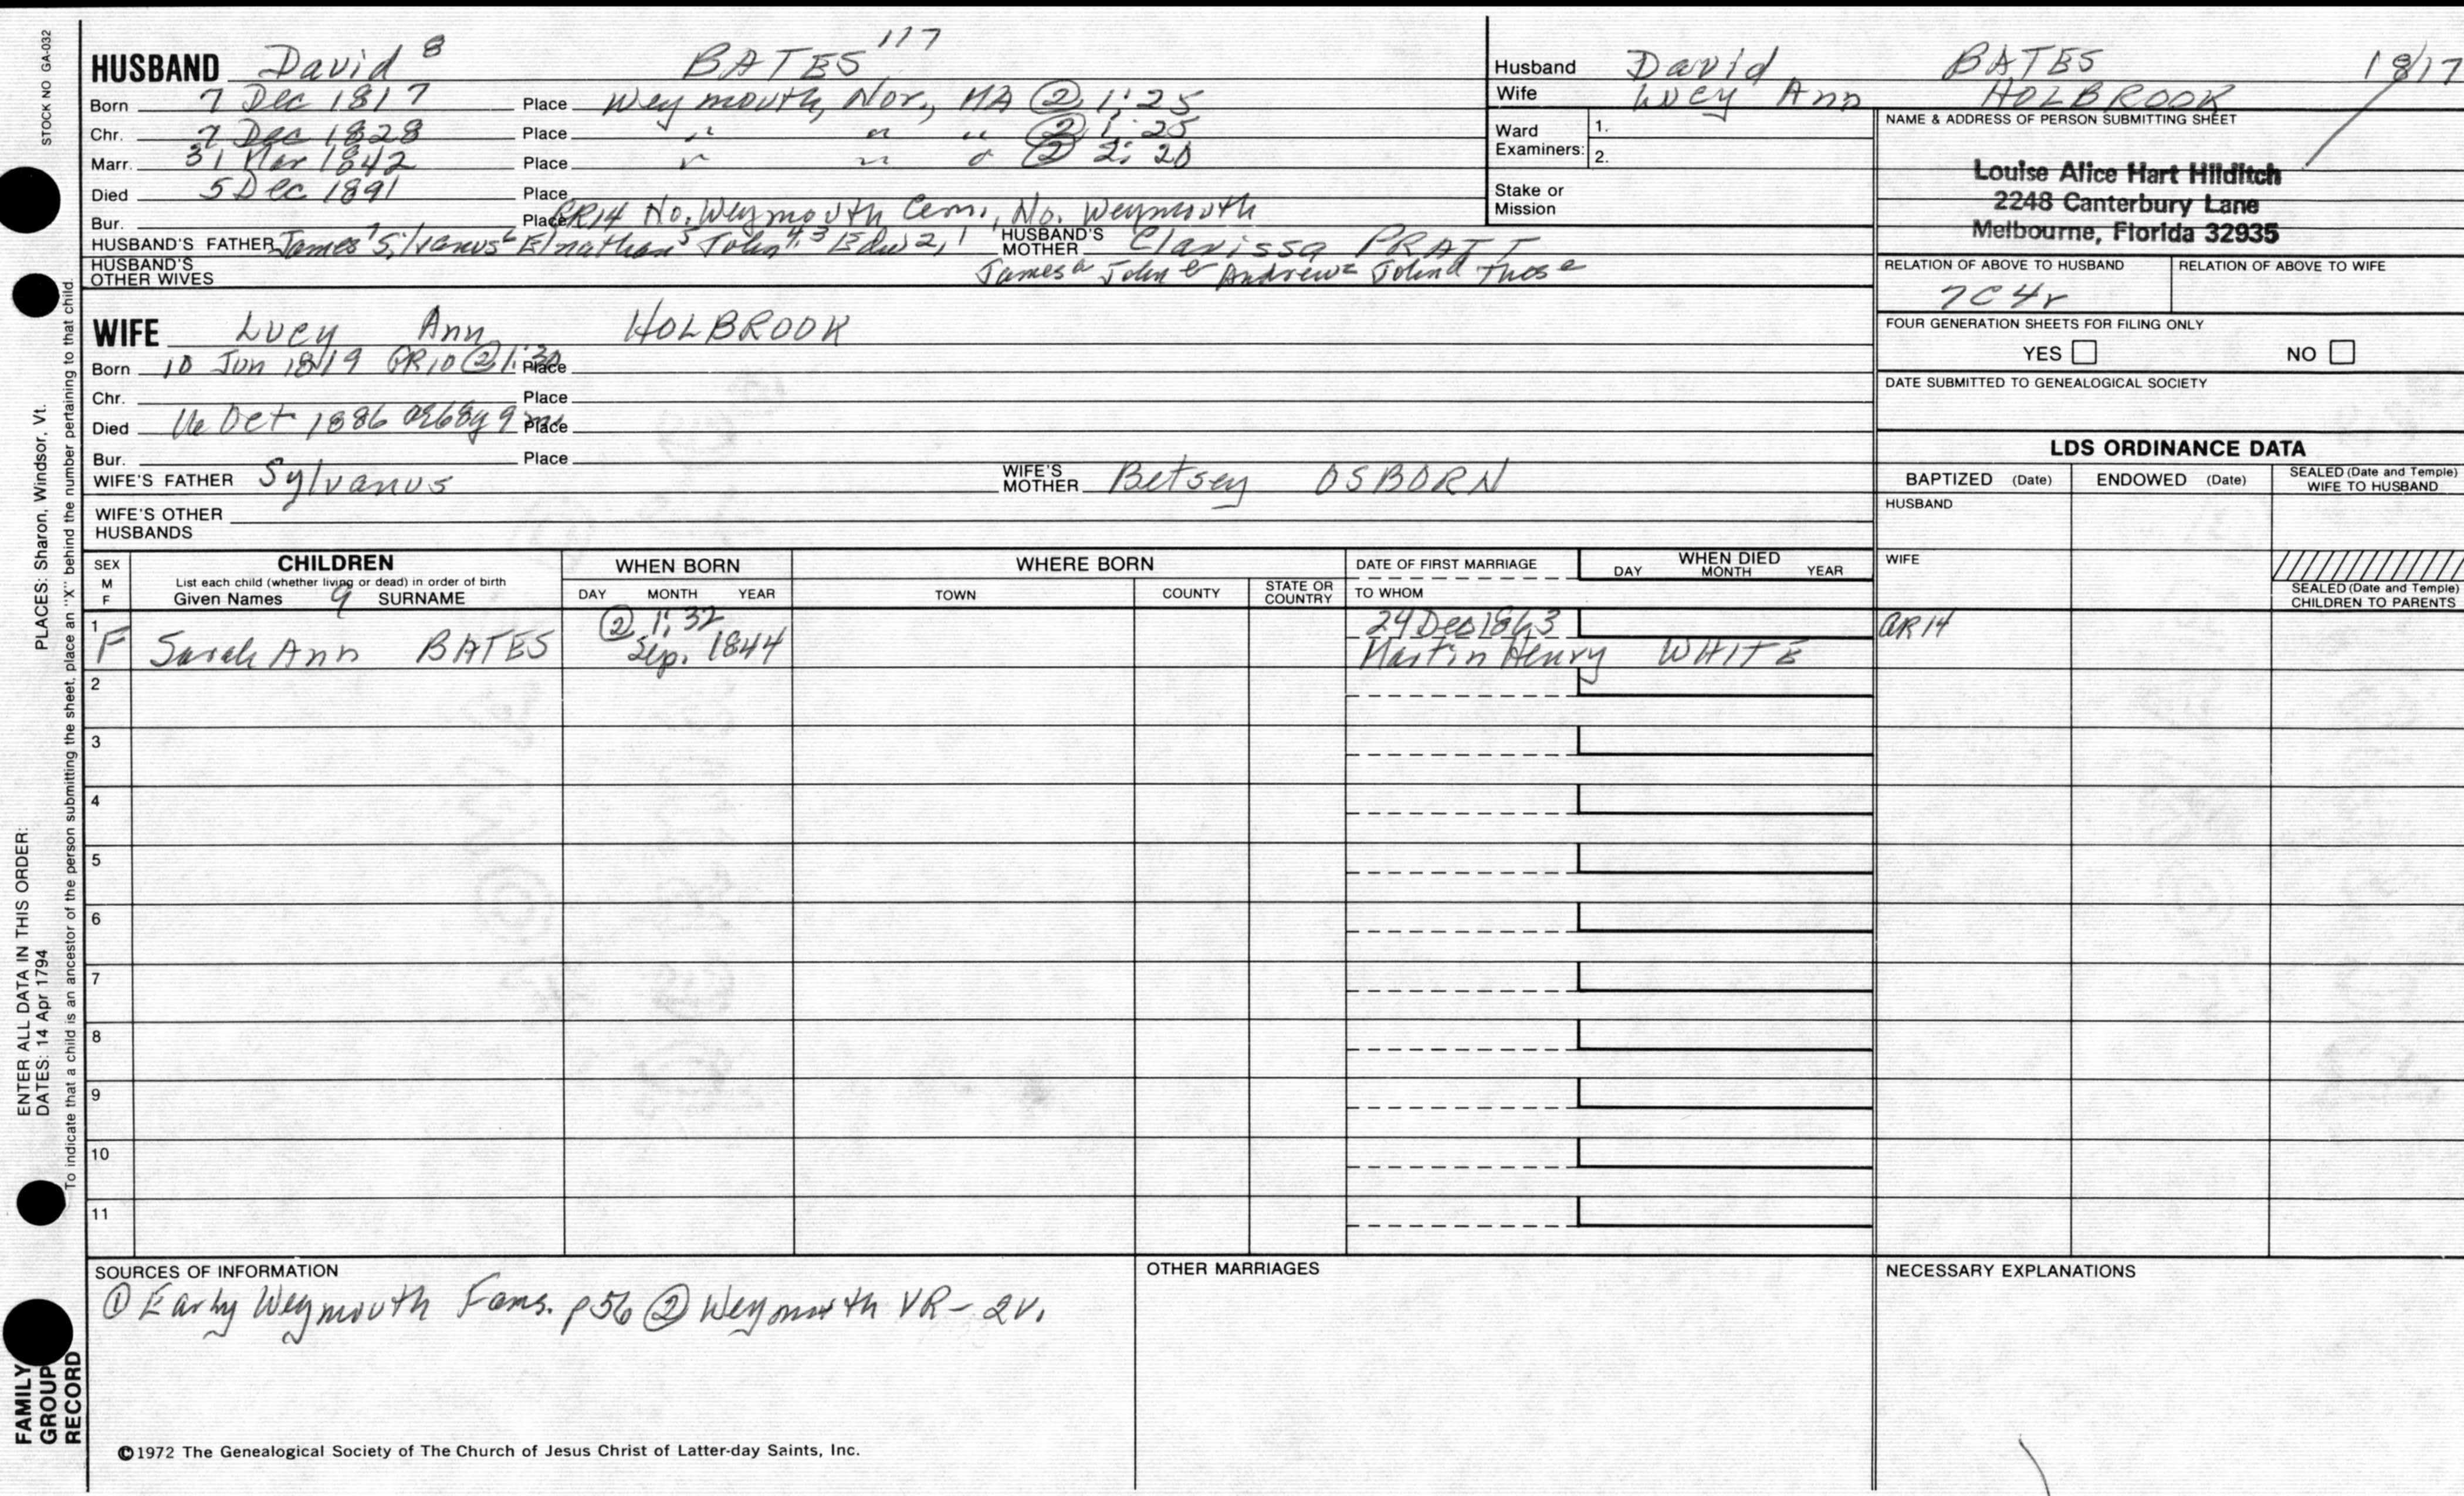 STOCK NO GA-032
HUSBAND David 8 BATES 117
Born 7 Dec 1817 Place Weymouth, Nor., MA @ 1:25
Chr. 7 Dec 1828 Place " " " ② 1:25
Marr. 31 Mar 1842 Place " " " ② 2:20
Died 5 Dec 1891 Place
Bur. Place GR14 No. Weymouth Cem., No. Weymouth
HUSBAND'S FATHER James7 Silvanus6 Elnathan5 John4,3 Edw 2,1 HUSBAND'S MOTHER Clarissa PRATT
HUSBAND'S OTHER WIVES James John Andrew John Thos
Husband David BATES 1817
Wife Lucy Ann HOLBROOK
Ward Examiners: 1.
2.
Stake or Mission
NAME & ADDRESS OF PERSON SUBMITTING SHEET
Louise Alice Hart Hilditch
2248 Canterbury Lane
Melbourne, Florida 32935
RELATION OF ABOVE TO HUSBAND RELATION OF ABOVE TO WIFE
7C4r
FOUR GENERATION SHEETS FOR FILING ONLY
YES NO
DATE SUBMITTED TO GENEALOGICAL SOCIETY
WIFE Lucy Ann HOLBROOK
Born 10 Jun 1819 GR10 ② 1: Place
Chr. Place
Died Oct 1886 Place
Bur. Place
WIFE'S FATHER Sylvanus WIFE'S MOTHER Betsey OSBORN
WIFE'S OTHER HUSBANDS
LDS ORDINANCE DATA
BAPTIZED (Date) ENDOWED (Date) SEALED (Date and Temple) WIFE TO HUSBAND
HUSBAND
WIFE
SEALED (Date and Temple) CHILDREN TO PARENTS
SEX M F CHILDREN WHEN BORN WHERE BORN DATE OF FIRST MARRIAGE WHEN DIED
List each child (whether living or dead) in order of birth
Given Names 9 SURNAME DAY MONTH YEAR TOWN COUNTY STATE OR COUNTRY TO WHOM DAY MONTH YEAR
1 ② 1:32 24 Dec 1863 GR14
F Sarah Ann BATES Sep. 1844 Martin Henry WHITE
2
3
4
5
6
7
8
9
10
11
SOURCES OF INFORMATION
① Early Weymouth Fams. p56 ② Weymouth VR - 2v.
OTHER MARRIAGES
NECESSARY EXPLANATIONS
©1972 The Genealogical Society of The Church of Jesus Christ of Latter-day Saints, Inc.
ENTER ALL DATA IN THIS ORDER:
DATES: 14 Apr 1794 PLACES: Sharon, Windsor, Vt.
To indicate that a child is an ancestor of the person submitting the sheet, place an "X" behind the number pertaining to that child.
FAMILY GROUP RECORD